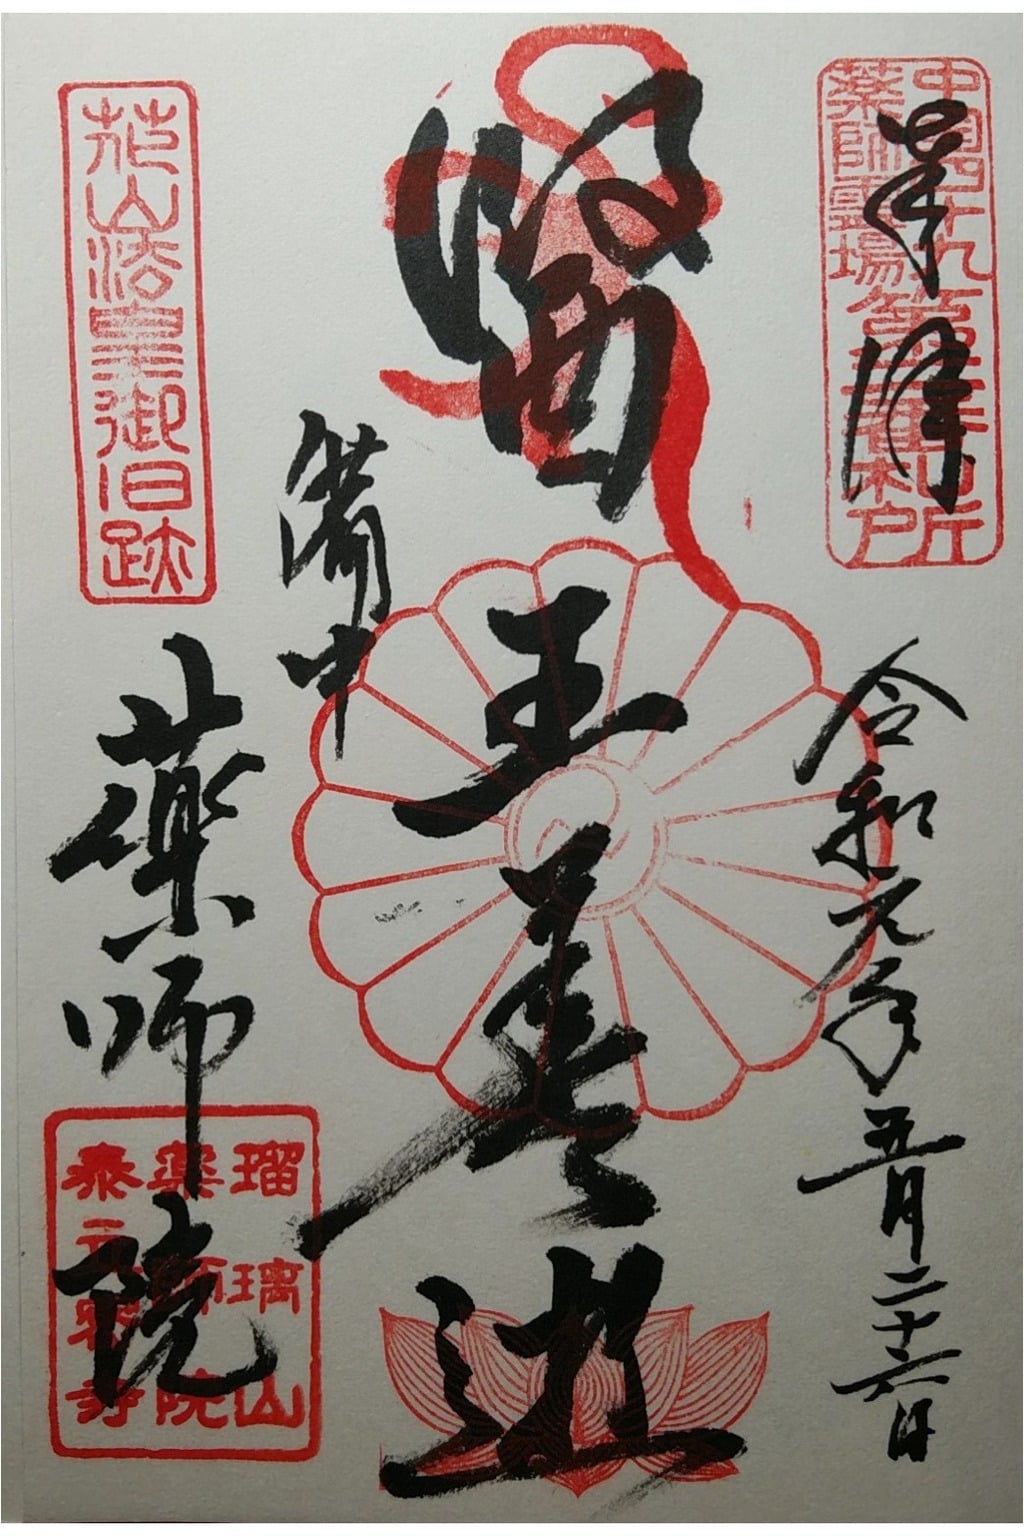 奉拝
中国四十九
薬師霊場
札所
令和元年五月二十六日
醫王善逝
備中
薬師院
花山法皇御旧跡
瑠璃山
薬師院
泰立 寺